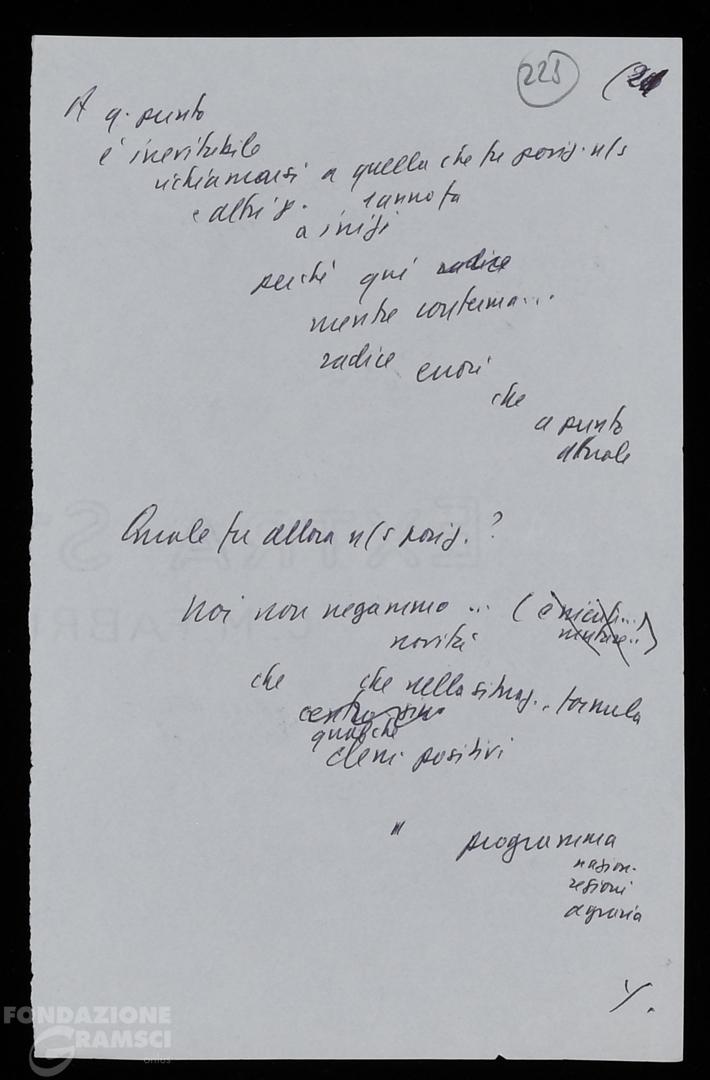 225 (21
A q. punto
è inevitabile
richiamarsi a quella che fu posiz. n/s
e altri p. 1 anno fa
a inizi
perché qui radice
mentre conferma...
radice errori
che
a punto
attuale
Quale fu allora n/s posiz.?
Noi non negammo ... (
novità
che che nella situaz. formula
centro sin.
qualche
elem. positivi
" programma
nazion.
regioni
agraria
./.
EXTRA S
FABRI
FONDAZIONE
GRAMSCI
onlus